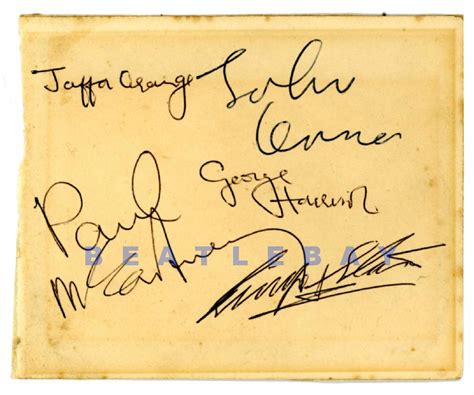 Jaffa Orange
John
Lennon
George
Harrison
Paul
McCartney
BEATLEBAY
Ringo Starr